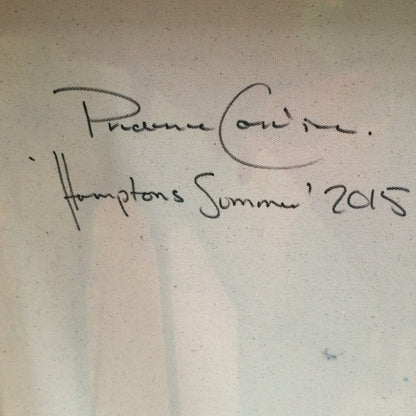 Prudence Caw'ne.
'Hamptons Summer' 2015